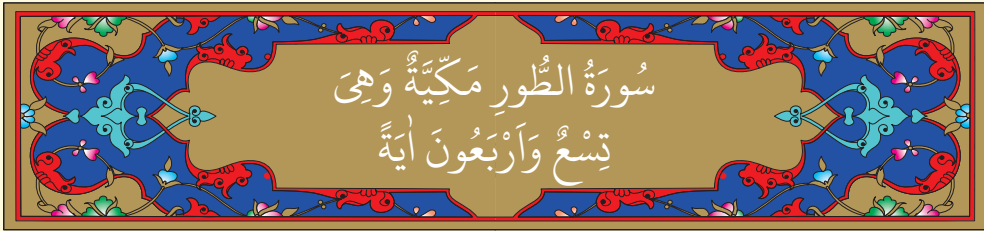 سُورَةُ الطُّورِ مَكِّيَّةٌ وَهِىَ
تِسْعٌ وَاَرْبَعُونَ اٰيَةً